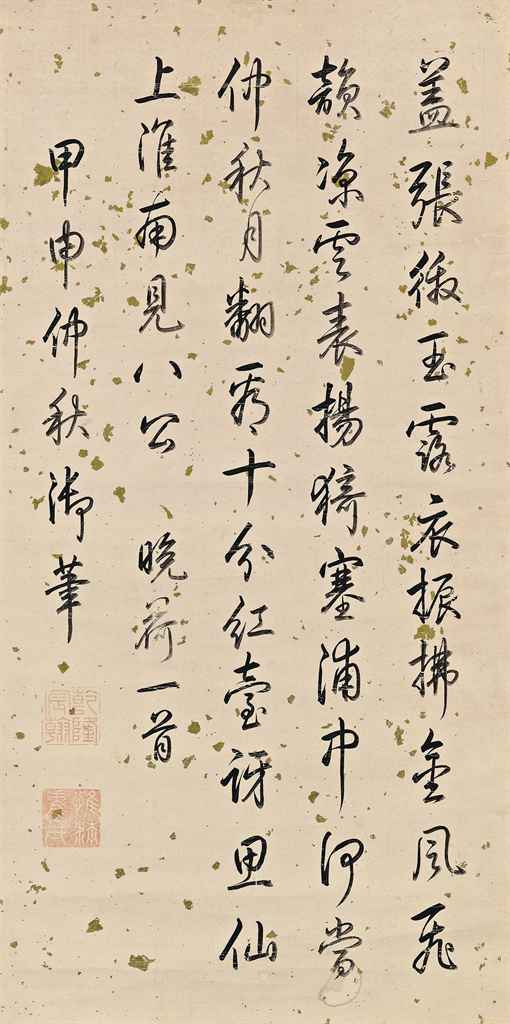 蓋張玉露衣振拂金風飛
韻涼雲表揚猗塞浦中何當
仲秋月翻看十分紅臺訝思仙
上淮南見八公 晚荷一首
甲申仲秋御筆
乾隆宸翰